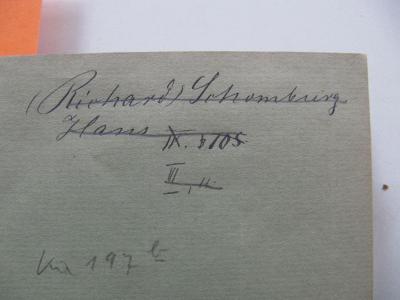 (Richard) Schomburg
Hans IX. 5105
III, 11.
197 b